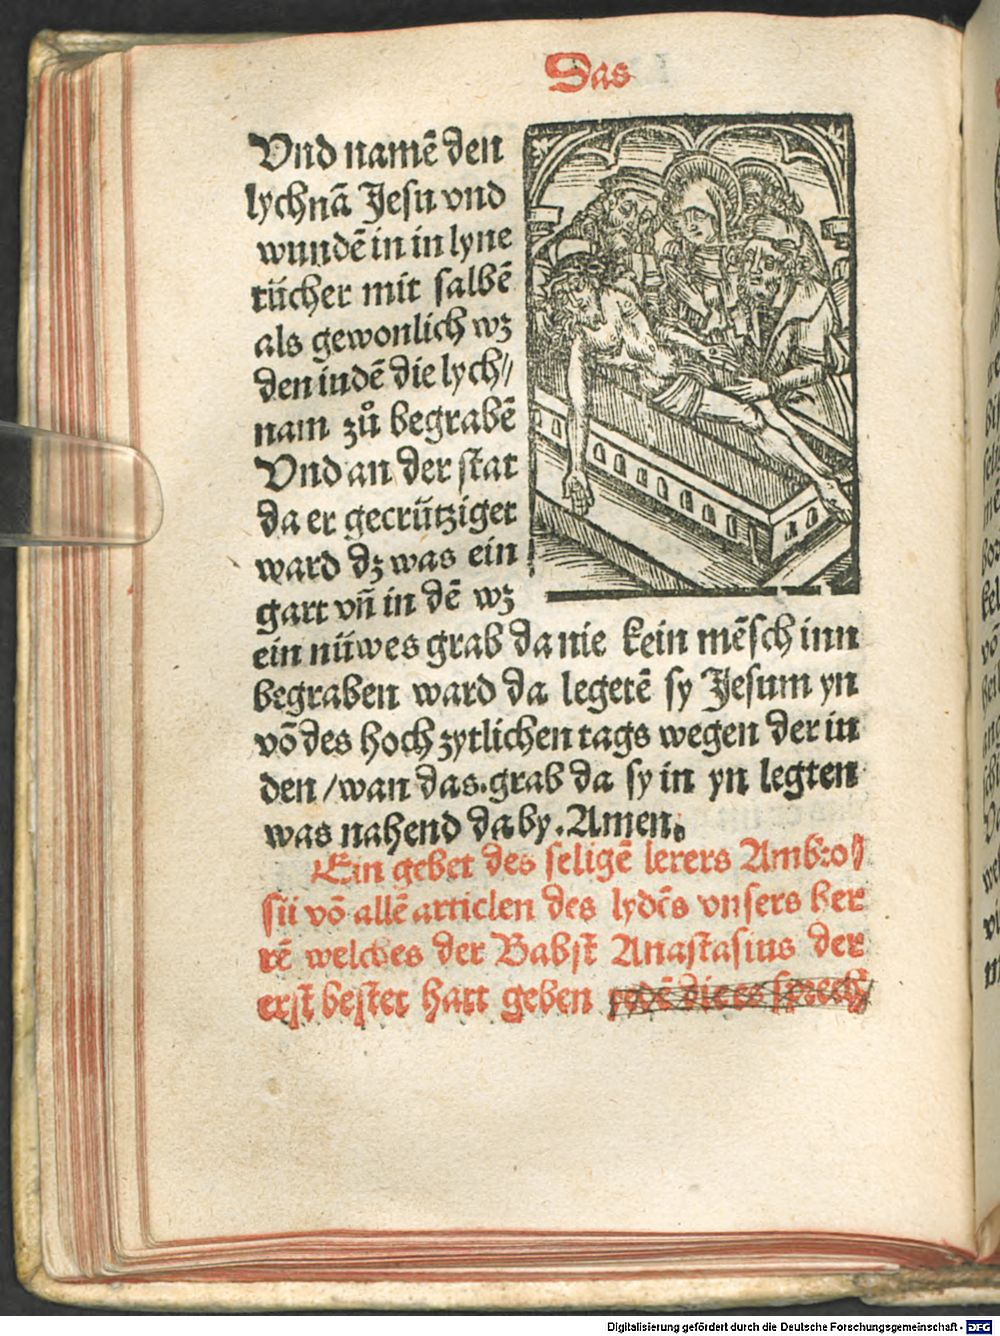 Das
Vnd namē den
lychnā Jesu vnd
wundē in in lyne
tücher mit salbē
als gewonlich wz
den iudē die lych//
nam zů begrabē
Vnd an der stat
da er gecrütziget
ward dz was ein
gart vn̄ in dē wz
ein nüwes grab da nie kein mēsch inn
begraben ward da legetē sy Jesum yn
vō des hoch zytlichen tags wegen der iu
den / wan das. grab da sy in yn legten
was nahend da by. Amen.
Ein gebet des seligē lerers Ambro//
sii vō allē articlen des lydēs vnsers her
rē welches der Babst Anastasius der
erst bestet hatt geben
Digitalisierung gefördert durch die Deutsche Forschungsgemeinschaft - DFG